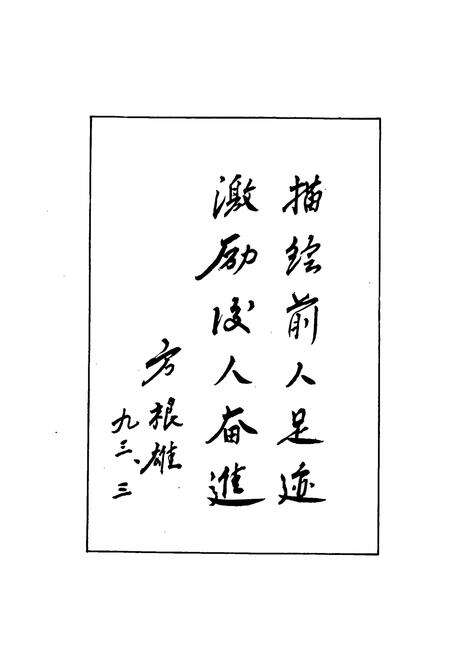 描绘前人足迹
激励后人奋進
方根雄
九三、三